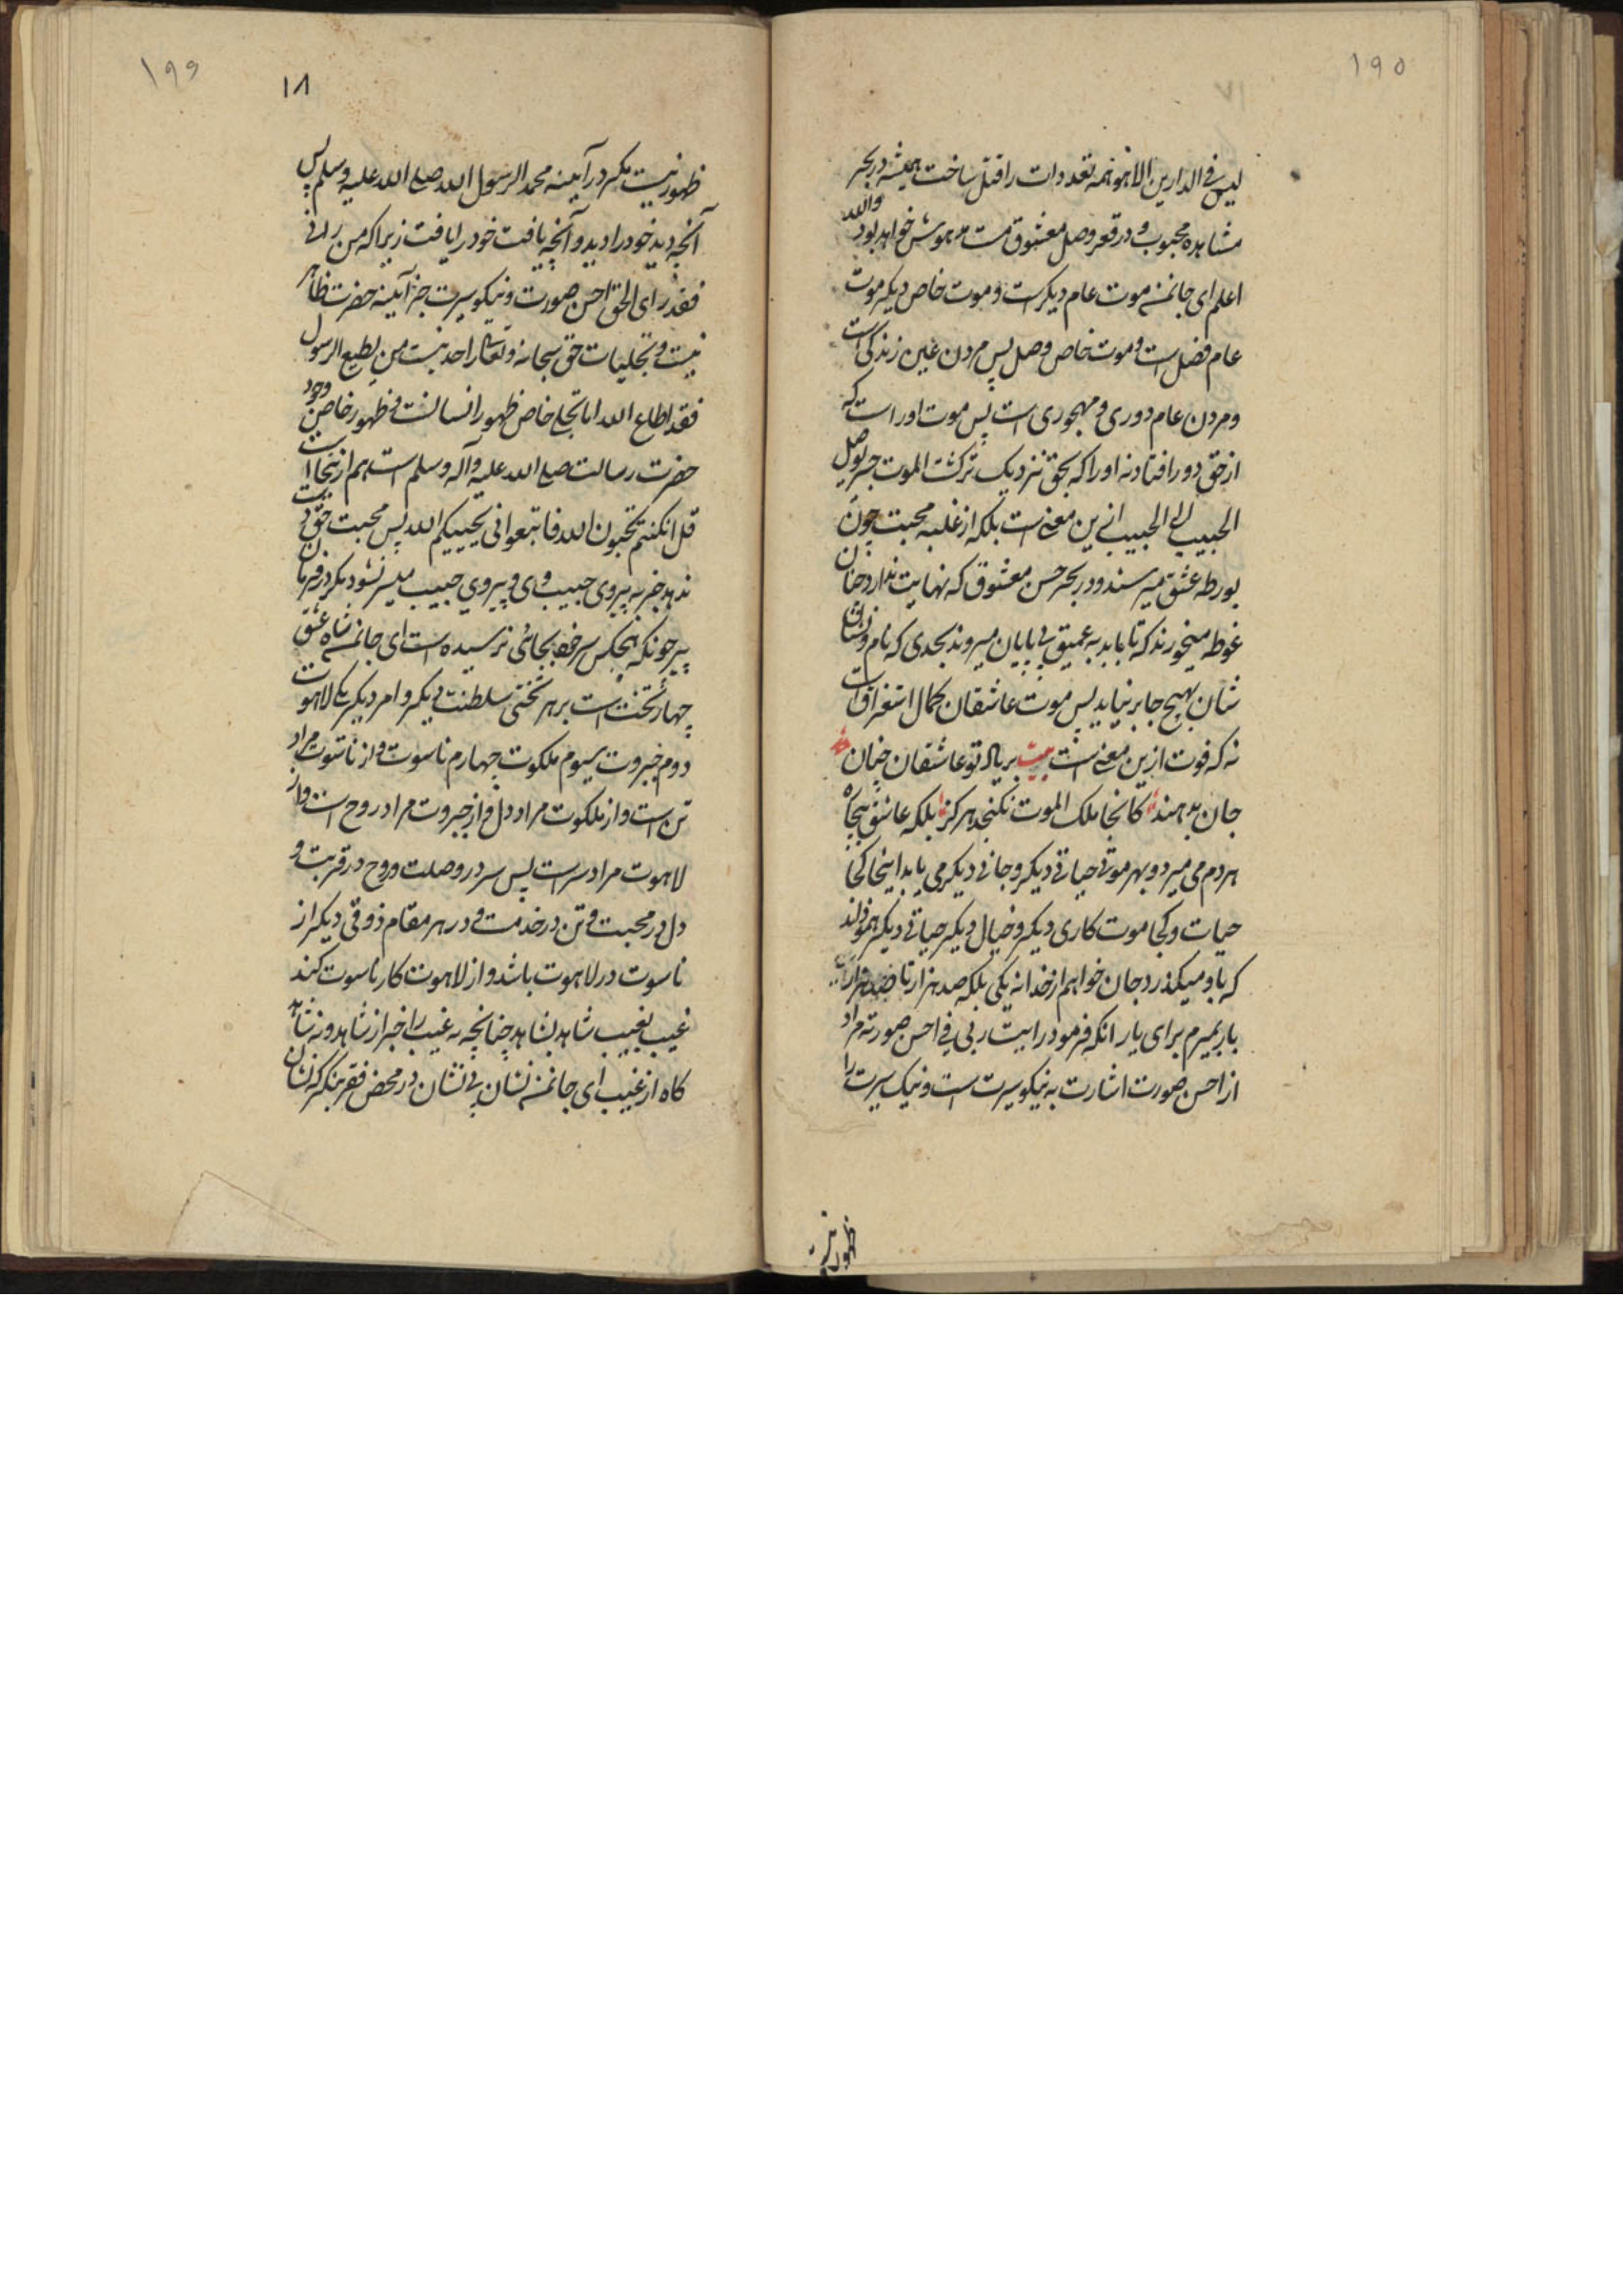 ۱۹۵
لیس فی الدارین الا هو همه تعددات را قتل ساخت همیشه در بحر
مشاهده محبوب و در قعر وصل معشوق مست مدهوش خواهد بود والله
اعلم ای جانمن موت عام دیکرست و موت خاص دیکر موت
عام فضل است و موت خاص وصل پس مردن عین زندکی است
و مردن عام دوری و مهجوری است پس موت او راست که
از حق دور افتاد نه او را که بحق نزدیک ترکشت الموت جسر یوصل
الحبیب الی الحبیب ازین معنی است بلکه از غلبه محبت چون
بورطه عشق میرسند و در بحر حسن معشوق که نهایت ندارد چنان
غوطه میخورند که تا باید به عمیق بی پایان میروند بحدی که نام و نشان
شان بهیچ جا بر نیاید پس موت عاشقان کمال استغراق است
نه که فوت ازین معنی است بیت بر یاد تو عاشقان چنان
جان بدهند کانجا ملک الموت نکنجد هرکز بلکه عاشق بیجاه
هر دم می میرد و بهر موتی حیاتی دیکر و جانی دیکر می یابد اینجا کجا
حیات و کجا موت کاری دیکر و خیال دیکر حیاتی دیکر
که باو میکذرد جان خواهم از خدا نه یکی بلکه صد هزار تا صد هزار
بار بمیرم برای یار انکه فرمود رایت ربی فی احسن صورته مراد
از احسن صورت اشارت به نیکو سیرت است و نیک سیرت را
ظهور نیست
۱۹۶
۱۸
ظهور نیست مکر در آیینه محمد الرسول الله صلی الله علیه وسلم پس
آنچه دید خود را دید و آنچه یافت خود را یافت زیرا که من رانی
فقد رای الحق احسن صورت و نیکو سیرت جز آیینه حضرت ظاهر
نیست و تجلیات حق سبحانه و تعالی را حد نیست من یطیع الرسول
فقد اطاع الله اما تجلی خاص ظهور انسانست و ظهور خاص وجود
حضرت رسالت صلی الله علیه و آله وسلم است هم از ینجا است
قل انکنتم تحبون الله فاتبعوانی یحببکم الله پس محبت حق
ندهد جز به پیروی حبیب وی و پیروی حبیب میسر نشود مکر در فرمان
پیر چونکه هیچکس سر خود بجائی نرسیده است ای جانمن شاه عشق
چهار تختست بر هر تختی سلطنت دیکر و امر دیکر یکی لاهوت
دوم جبروت سیوم ملکوت چهارم ناسوت و از ناسوت مراد
تن است و از ملکوت مراد دل و از جبروت مراد روح است و از
لاهوت مراد سر است پس سر در وصلت و روح در قربت و
دل در محبت و تن در خدمت و در هر مقام ذوقی دیکر از
ناسوت در لاهوت باشد و از لاهوت کار ناسوت کند
غیب بغیب شاهد بشاهد چنانچه نه غیب را خبر از شاهد و نه شاهد
کاه از غیب ای جانمن نشان بی نشان در محض فقر بنکر که نشان